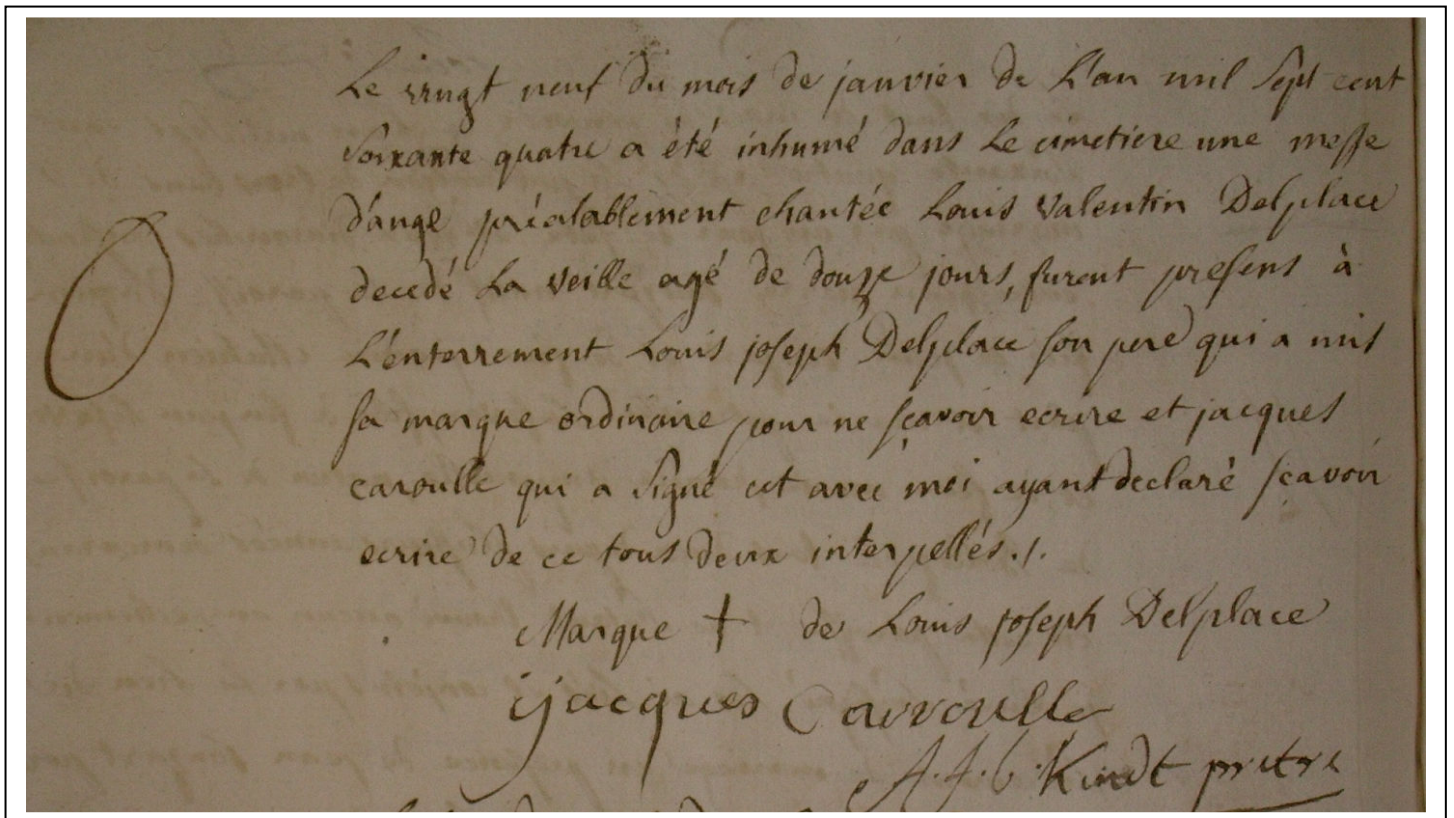 Le vingt neuf du mois de janvier de L'an mil sept cent
soixante quatre a été inhumé dans Le cimetiere une messe
d'ange préalablement chantée Louis Valentin Delplace
decedé La veille agé de douze jours, furent presens à
L'enterrement Louis joseph Delplace son pere qui a mis
sa marque ordinaire pour ne sçavoir ecrire et jacques
caroulle qui a signé cet avec moi ayant declaré sçavoir
ecrire de ce tous deux interpellés./.
Marque † de Louis joseph Delplace
jjacques Carroulle
Kindt pretre